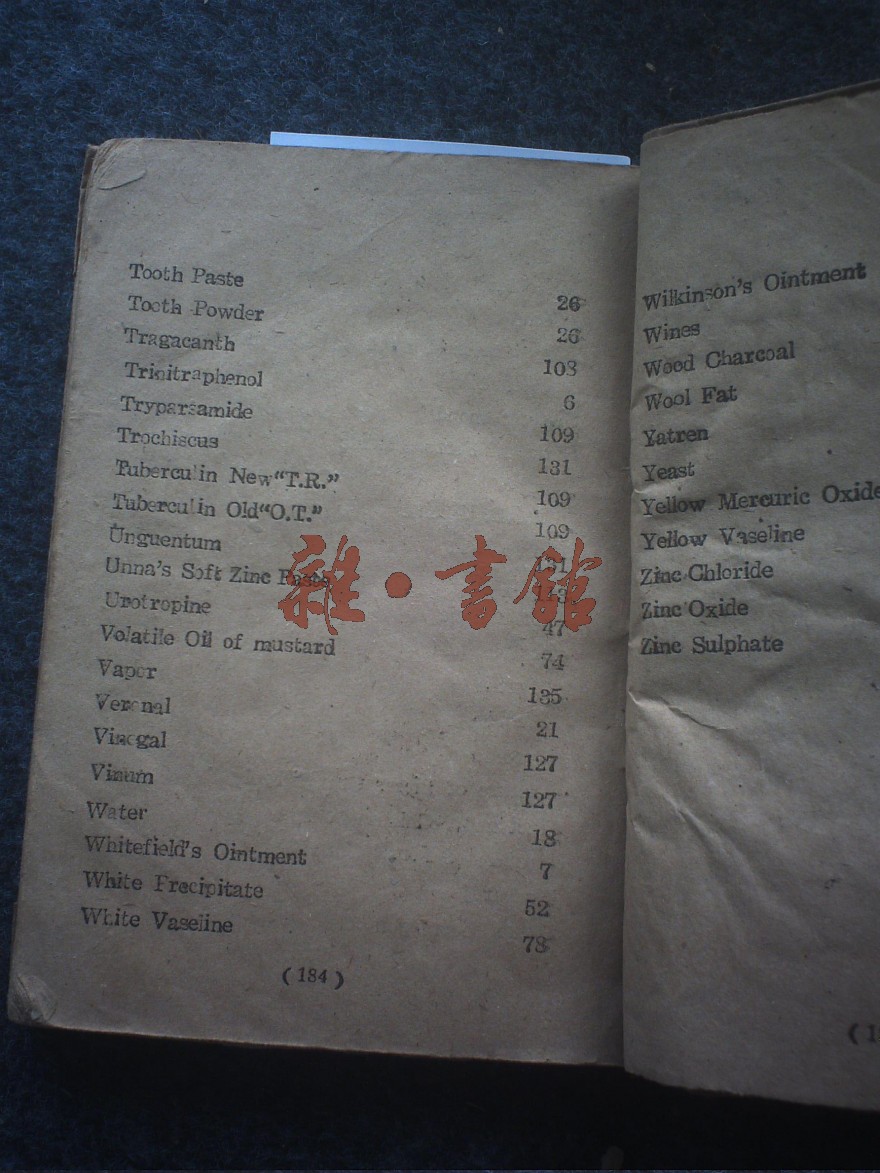 Tooth Paste 26
Tooth Powder 26
Tragacanth 103
Trinitraphenol 6
Tryparsamide 109
Trochiscus 131
Tuberculin New"T.R." 109
Tuberculin Old"O.T." 109
Unguentum 131
Unna's Soft Zinc Paste
Urotropine 47
Volatile Oil of mustard 74
Vapor 135
Veronal 21
Vinegal 127
Vinum 127
Water 18
Whitefield's Ointment 7
White Frecipitate 52
White Vaseline 78
(184)
Wilkinson's Ointment
Wines
Wood Charcoal
Wool Fat
Yatren
Yeast
Yellow Mercuric Oxide
Yellow Vaseline
Zinc Chloride
Zinc Oxide
Zinc Sulphate
雜·書館